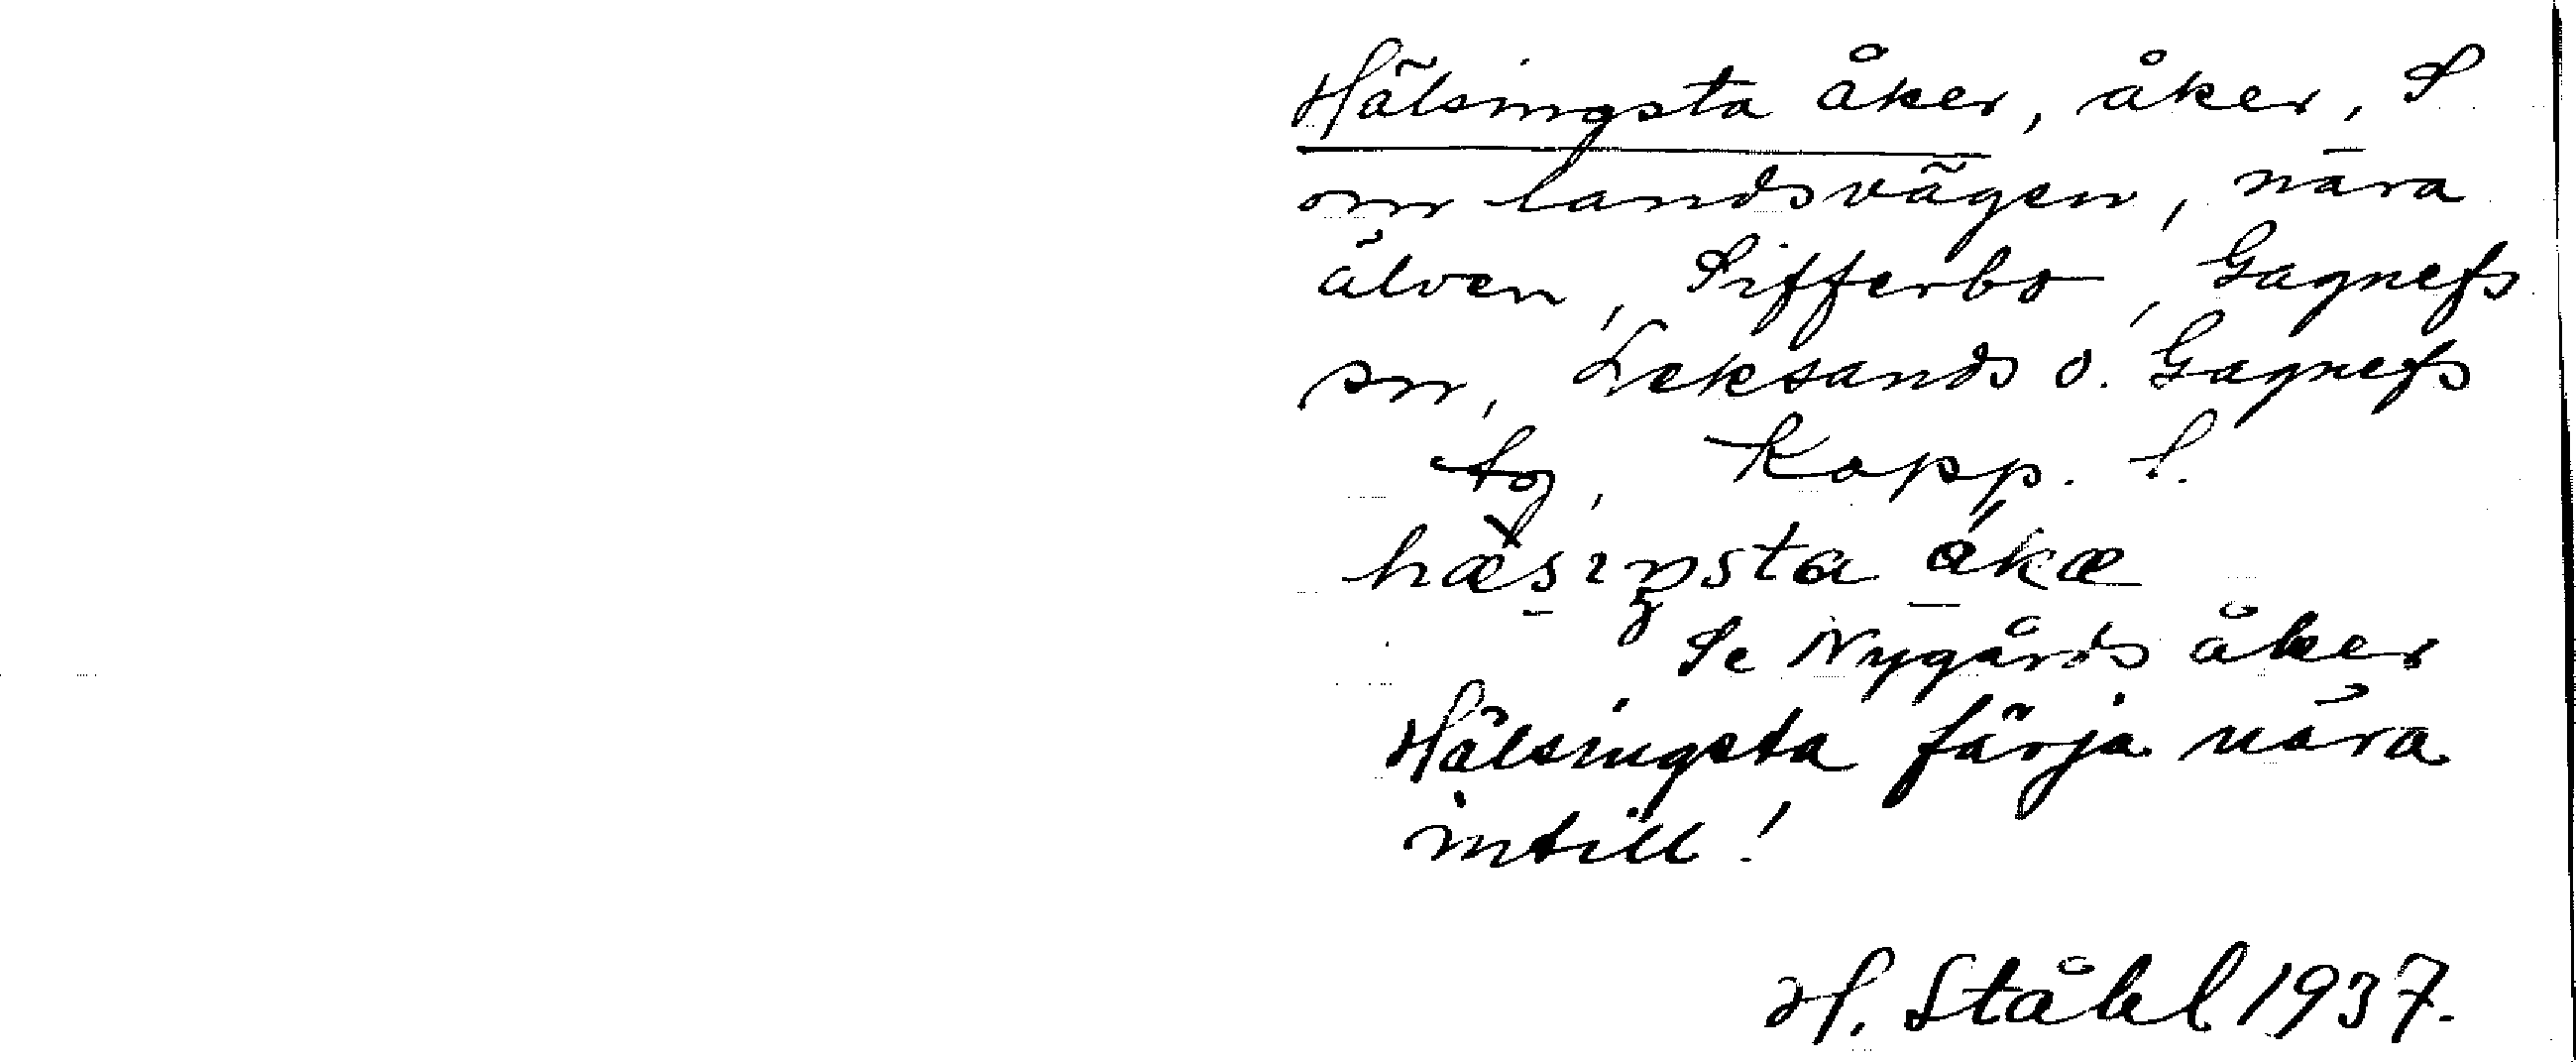 Hälsingsta åker, åker, S
om landsvägen, nära
älven, Sifferbo, Gagnefs
sn, Leksands o. Gagnefs
tg, Kopp. l.
Se Nygårds åker
Hälsingsta färja nära
intill!
H. Ståhl 1937.